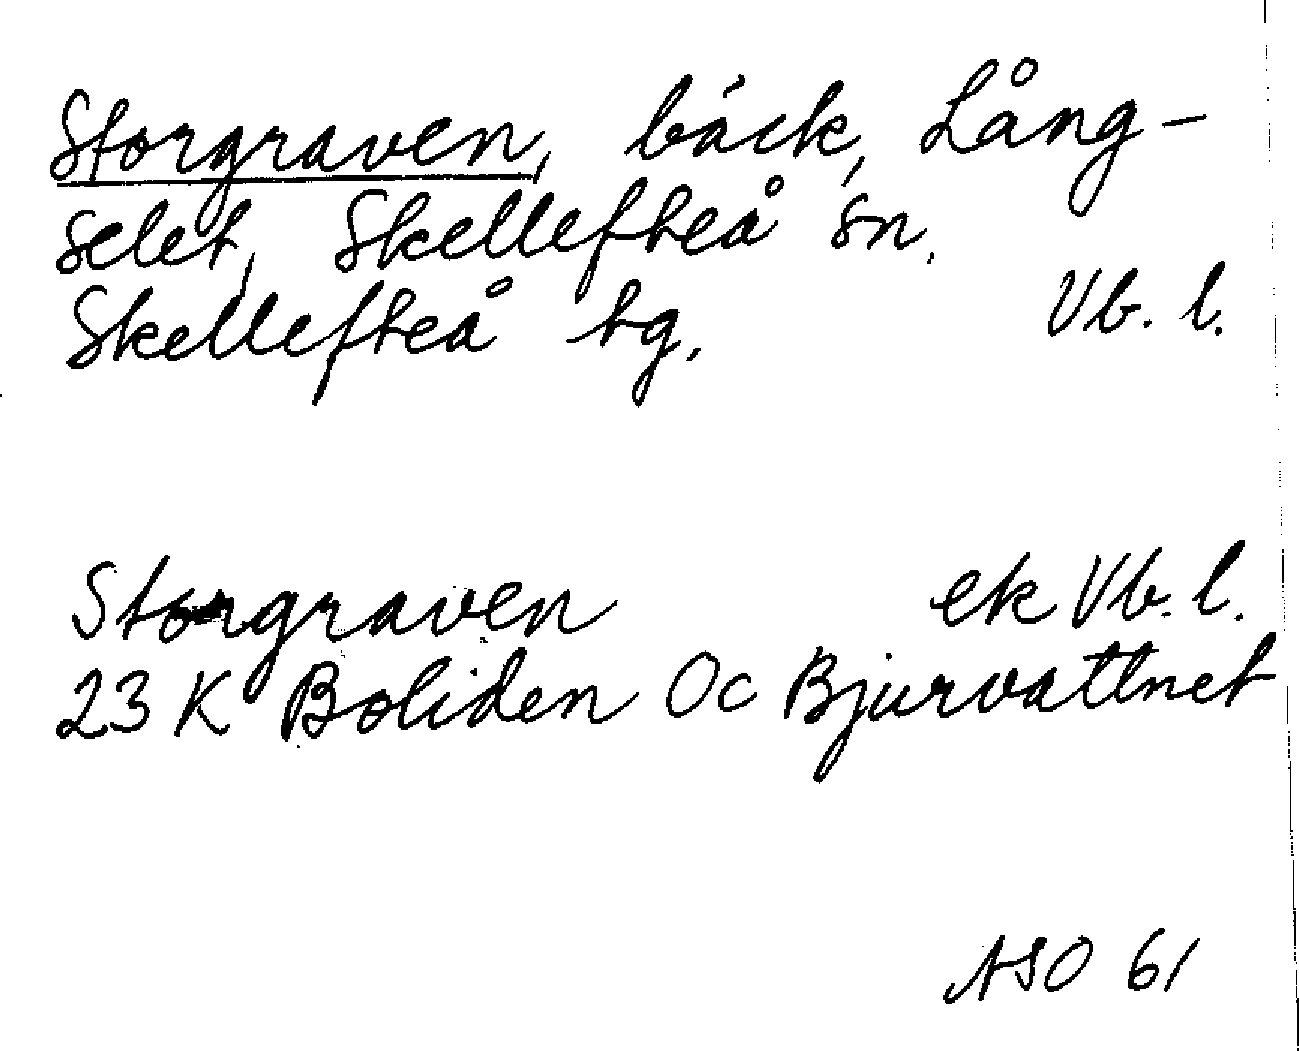 Storgraven, bäck, Lång-
selet, Skellefteå sn.
Skellefteå tg. Vb. l.
Storgraven ek Vb. l.
23 K Boliden Oc Bjurvattnet
ASO 61